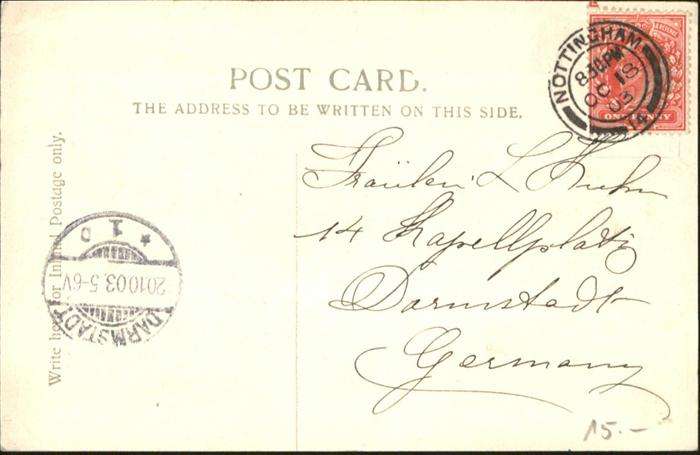 POST CARD.
THE ADDRESS TO BE WRITTEN ON THIS SIDE.
NOTTINGHAM
8.30PM
OC 18
03
ONE PENNY
Write here for Inland Postage only.
Fräulein L Kuhn
14 Kapellplatz
Darmstadt
Germany
DARMSTADT
20.10.03.5-6V.
* 1 c
15.-